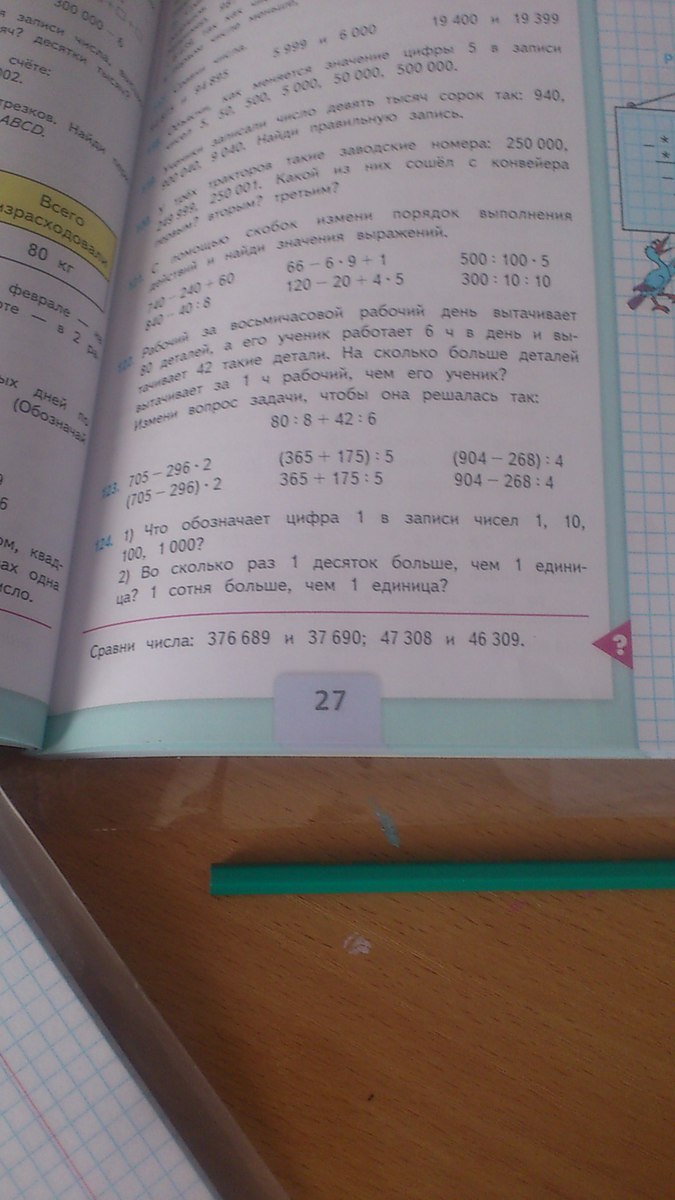 300 000 – 6
записи числа,
яч? десятки тысяч
счёте:
002.
трезков. Найди
ABCD.
Всего
израсходовали
80 кг
феврале —
оте — в 2 ра
ых дней по
(Обозначай
9
6
ом, квад-
ах одна
исло.
число меньше.
числа.
5 999 и 6 000
19 400 и 19 399
как меняется значение цифры 5 в записи
чисел 5, 50, 500, 5 000, 50 000, 500 000.
Ученики записали число девять тысяч сорок так: 940,
900 040, 9 040. Найди правильную запись.
У трёх тракторов такие заводские номера: 250 000,
249 999, 250 001. Какой из них сошёл с конвейера
первым? вторым? третьим?
121. С помощью скобок измени порядок выполнения
действий и найди значения выражений.
740 – 240 + 60
66 – 6 · 9 + 1
500 : 100 · 5
840 – 40 : 8
120 – 20 + 4 · 5
300 : 10 : 10
122. Рабочий за восьмичасовой рабочий день вытачивает
80 деталей, а его ученик работает 6 ч в день и вы-
тачивает 42 такие детали. На сколько больше деталей
вытачивает за 1 ч рабочий, чем его ученик?
Измени вопрос задачи, чтобы она решалась так:
80 : 8 + 42 : 6
123. 705 – 296 · 2
(365 + 175) : 5
(904 – 268) : 4
(705 – 296) · 2
365 + 175 : 5
904 – 268 : 4
124. 1) Что обозначает цифра 1 в записи чисел 1, 10,
100, 1 000?
2) Во сколько раз 1 десяток больше, чем 1 едини-
ца? 1 сотня больше, чем 1 единица?
Сравни числа: 376 689 и 37 690; 47 308 и 46 309.
?
27